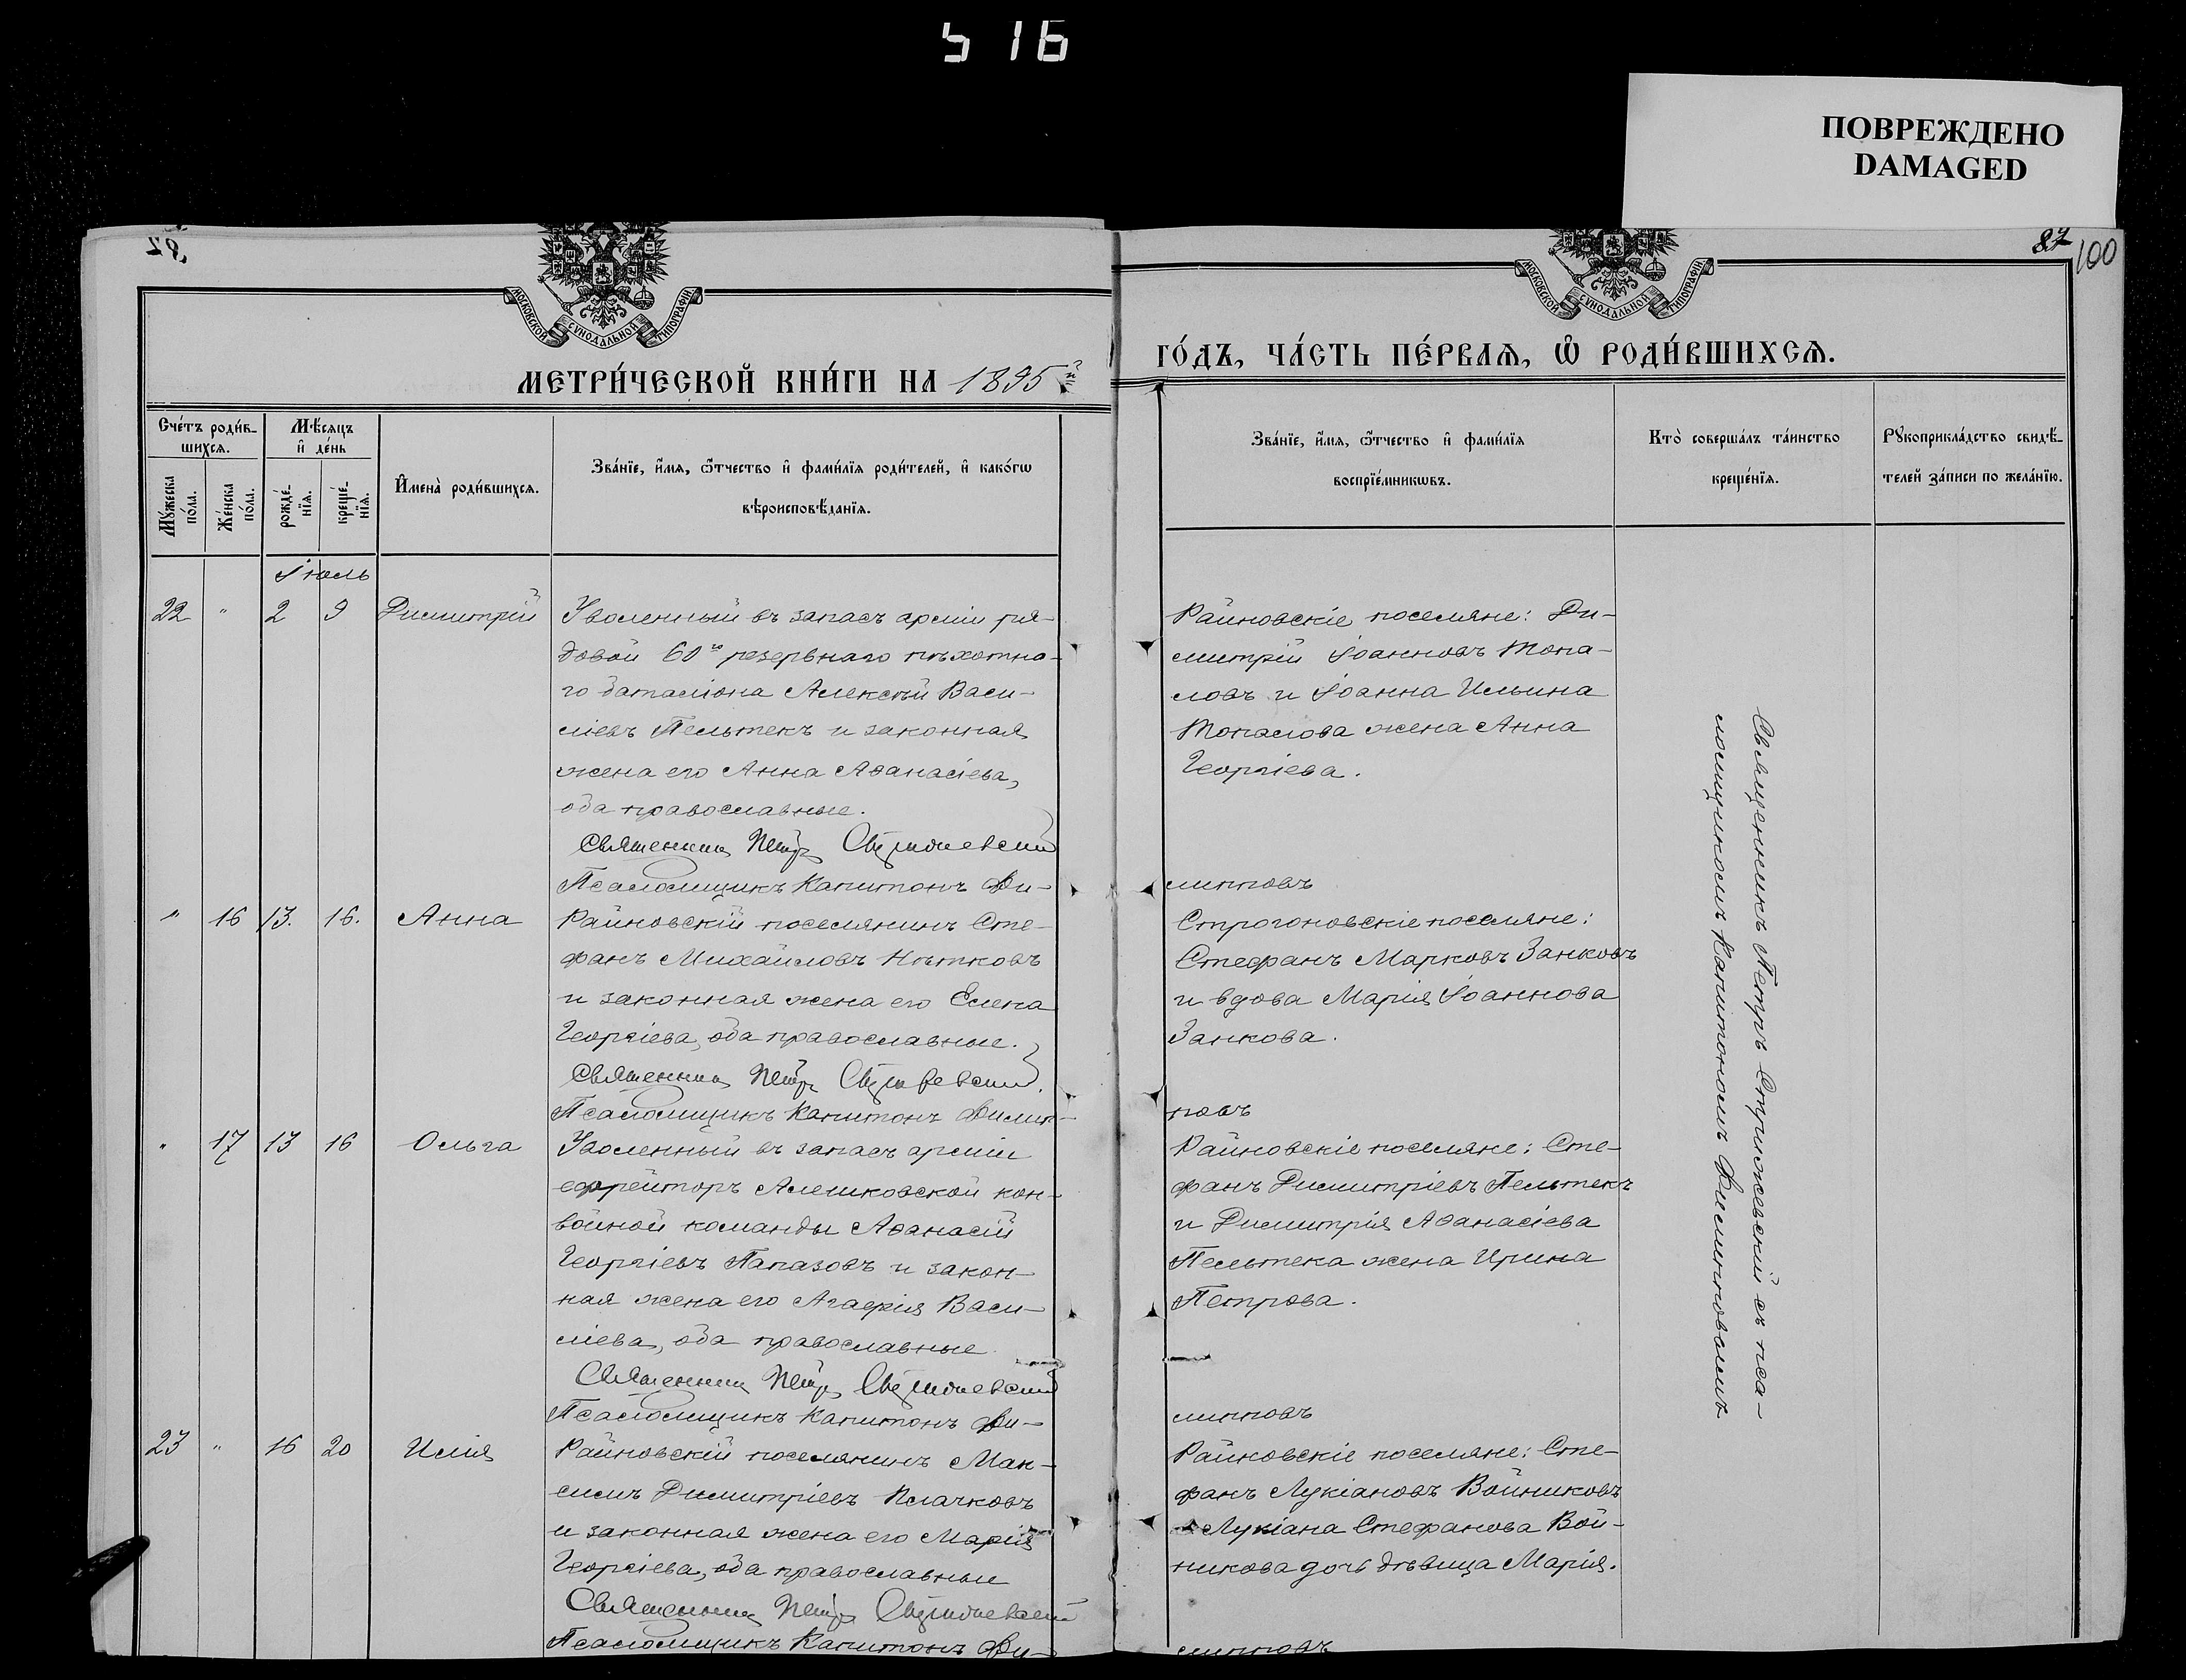 516
ПОВРЕЖДЕНО
DAMAGED
87
87
100
МОСКОВСКОЙ СѴНОДАЛЬНОЙ ТИПОГРАФІИ
МОСКОВСКОЙ СѴНОДАЛЬНОЙ ТИПОГРАФІИ
МЕТРИ́ЧЕСКОЙ КНИ́ГИ НА 1895й
ГО́ДЪ, ЧА́СТЬ ПЕ́РВАЯ, Ѡ҆ РОДИ́ВШИХСЯ.
Сче́тъ роди́в-
шихся.
Мѣ́сяцъ
и҆ де́нь
Мꙋ́жеска
по́ла.
Же́нска
по́ла.
рожде́-
нїѧ.
креще́-
нїѧ.
И҆мена̀ роди́вшихсѧ.
Зва́нїе, и҆́мѧ, ѻ҆́тчество и҆ фами́лїѧ роди́телей, и҆ како́гѡ
вѣроисповѣ́данїѧ.
Зва́нїе, и҆́мѧ, ѻ҆́тчество и҆ фами́лїѧ
воспрїе́мникѡвъ.
Кто̀ соверша́лъ та́инство
креще́нїѧ.
Рꙋкоприкла́дство свидѣ́-
телей за́писи по жела́нїю.
Іюль
22 " 2 9 Димитрій
Уволенный въ запасъ арміи ря-
довой 60го резервнаго пѣхотна-
го баталіона Алексѣй Васи-
ліевъ Пельтекъ и законная
жена его Анна Аѳанасіева,
оба православные.
Священникъ Петръ Стрижевскій
Псаломщикъ Капитонъ Фи-
Райновскіе поселяне: Ди-
митрій Іоанновъ Топа-
ловъ и Іоанна Ильина
Топалова жена Анна
Георгіева.
липповъ
" 16 13. 16. Анна
Райновскій поселянинъ Сте-
фанъ Михайловъ Нѣтковъ
и законная жена его Елена
Георгіева, оба православные.
Священникъ Петръ Стрижевскій.
Псаломщикъ Капитонъ Филип-
Строгоновскіе поселяне:
Стефанъ Марковъ Занковъ
и вдова Марія Іоаннова
Занкова.
повъ
" 17 13 16 Ольга
Уволенный въ запасъ арміи
ефрейторъ Алешковской кон-
войной команды Аѳанасій
Георгіевъ Папазовъ и закон-
ная жена его Агафія Васи-
ліева, оба православные
Священникъ Петръ Стрижевскій
Псаломщикъ Капитонъ Фи-
Райновскіе поселяне: Сте-
фанъ Димитріевъ Пельтекъ
и Димитрія Аѳанасіева
Пельтека жена Ирина
Петрова.
липповъ
23 " 16 20 Илія
Райновскій поселянинъ Мак-
симъ Димитріевъ Плачковъ
и законная жена его Марія
Георгіева, оба православные
Священникъ Петръ Стрижевскій
Псаломщикъ Капитонъ Фи-
Райновскіе поселяне: Сте-
фанъ Лукіановъ Войниковъ
и Лукіана Стефанова Вой-
никова дочь дѣвица Марія.
липповъ
Священникъ Петръ Стрижевскій съ пса-
ломщикомъ Капитономъ Филипповымъ